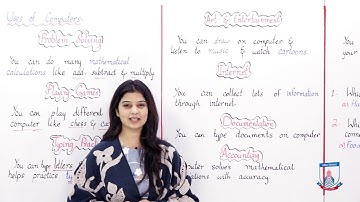 Uses of Computers:
Problem Solving
You can do many mathematical
calculations like add, subtract & multiply
Playing Games
You can play different
computer like chess & car
Typing Prac
You can type letters
helps practice
Art & Entertainment
You can draw on computer &
listen to music & watch cartoons.
Internet
You can collect lots of information
through internet.
Documentation
You can type documents on computer
Accounting
solves mathematical
with accuracy.
You
your
1-
2.